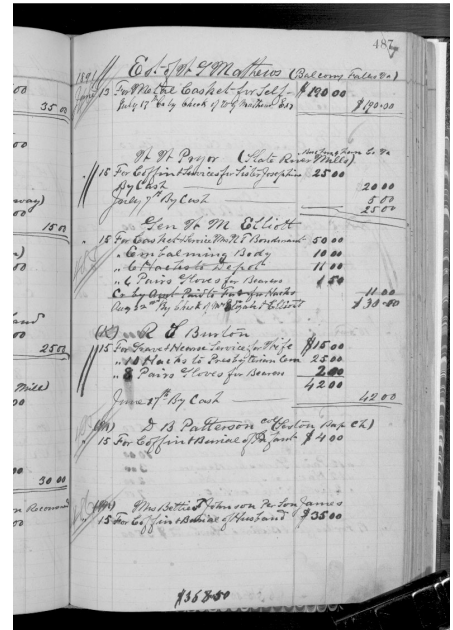 487
Est of W S Mathews (Balcony Falls Va)
1891
June 13 For Metal Casket for Self $190.00
July 17th Cr by Check of W G Mathews Exr $190.00
W W Pryor (Slate River Mills) Buckingham Co Va
15 For Coffin & Services for Sister Josephine 25 00
By Cash 20 00
July 7th By Cash 5 00
25 00
Gen W M Elliott
15 For Casket & Service Mrs N T Bondurant 50 00
" Embalming Body 10 00
" 6 Hacks to Depot 11 00
" 6 Pairs Gloves for Bearers 1 50
Cr by Amt Paid to for Hacks 11 00
Aug 3rd By Check of Mrs Elizabeth Elliott $30.00
(W) R S Burton
15 For Grave & Hearse Service for Wife $15 00
" 10 Hacks to Presbyterian Cem 25 00
" 8 Pairs Gloves for Bearers 2 00
42 00
June 27th By Cash 42 00
D B Patterson Col (Bap Ch)
15 For Coffin & Burial of Infant $4 00
Mrs Bettie Johnson Per Son James
15 For Coffin & Burial of Husband $35 00
$368.50
00
35 00
way)
00
15 00
)
00
land
00
25 00
Mill)
00
30 00